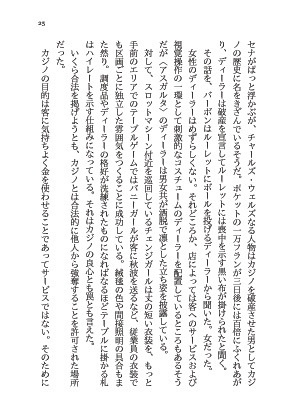 25
セナがぱっと浮かぶが、チャールズ・ウェルズなる人物はカジノを破産させた男としてカジ
ノの歴史に名をきざんでいるそうだ。ポケットの一万フランが三日後には百倍にふくれあが
り、ディーラーは破産を宣言してルーレットには喪中を示す黒い布が掛けられたと聞く。
その話を、バーボンはルーレットにボールを投げるディーラーから聞いた。女だった。
女性のディーラーはめずらしくない。それどころか、店によっては客へのサービスおよび
視覚操作の一環として刺激的なコスチュームのディーラーを配置しているところもあるそう
だが〈アスガルタ〉のディーラーは男女共が洒脱で凛とした立ち姿を披露している。
対して、スロットマシーン付近を巡回しているチェンジガールは丈の短い衣装を、もっと
手前のエリアでのテーブルゲームではバニーガールが客に秋波を送るなど、従業員の衣装で
も区画ごとに独立した雰囲気をつくることに成功している。絨毯の色や間接照明の具合もま
た然り。調度品やディーラーの格好が洗練されたものになればなるほどテーブルに掛かる札
はハイレートを示す仕組みになっている。それはカジノの良心とも罠とも言えた。
いくら合法を掲げようとも、カジノとは合法的に他人から強奪することを許された場所
だった。
カジノの目的は客に気持ちよく金を使わせることであってサービスではない。そのために